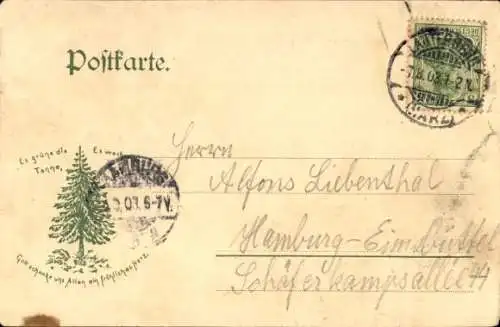 Postkarte.
Es grüne die
Tanne,
Es wachse
Gott schenke uns Allen ein fröhliches Herz.
LAUTERBERG
(HARZ)
HAMBURG
Herrn
Alfons Liebenthal
Hamburg-Eimsbüttel
Schäferkampsallee 44